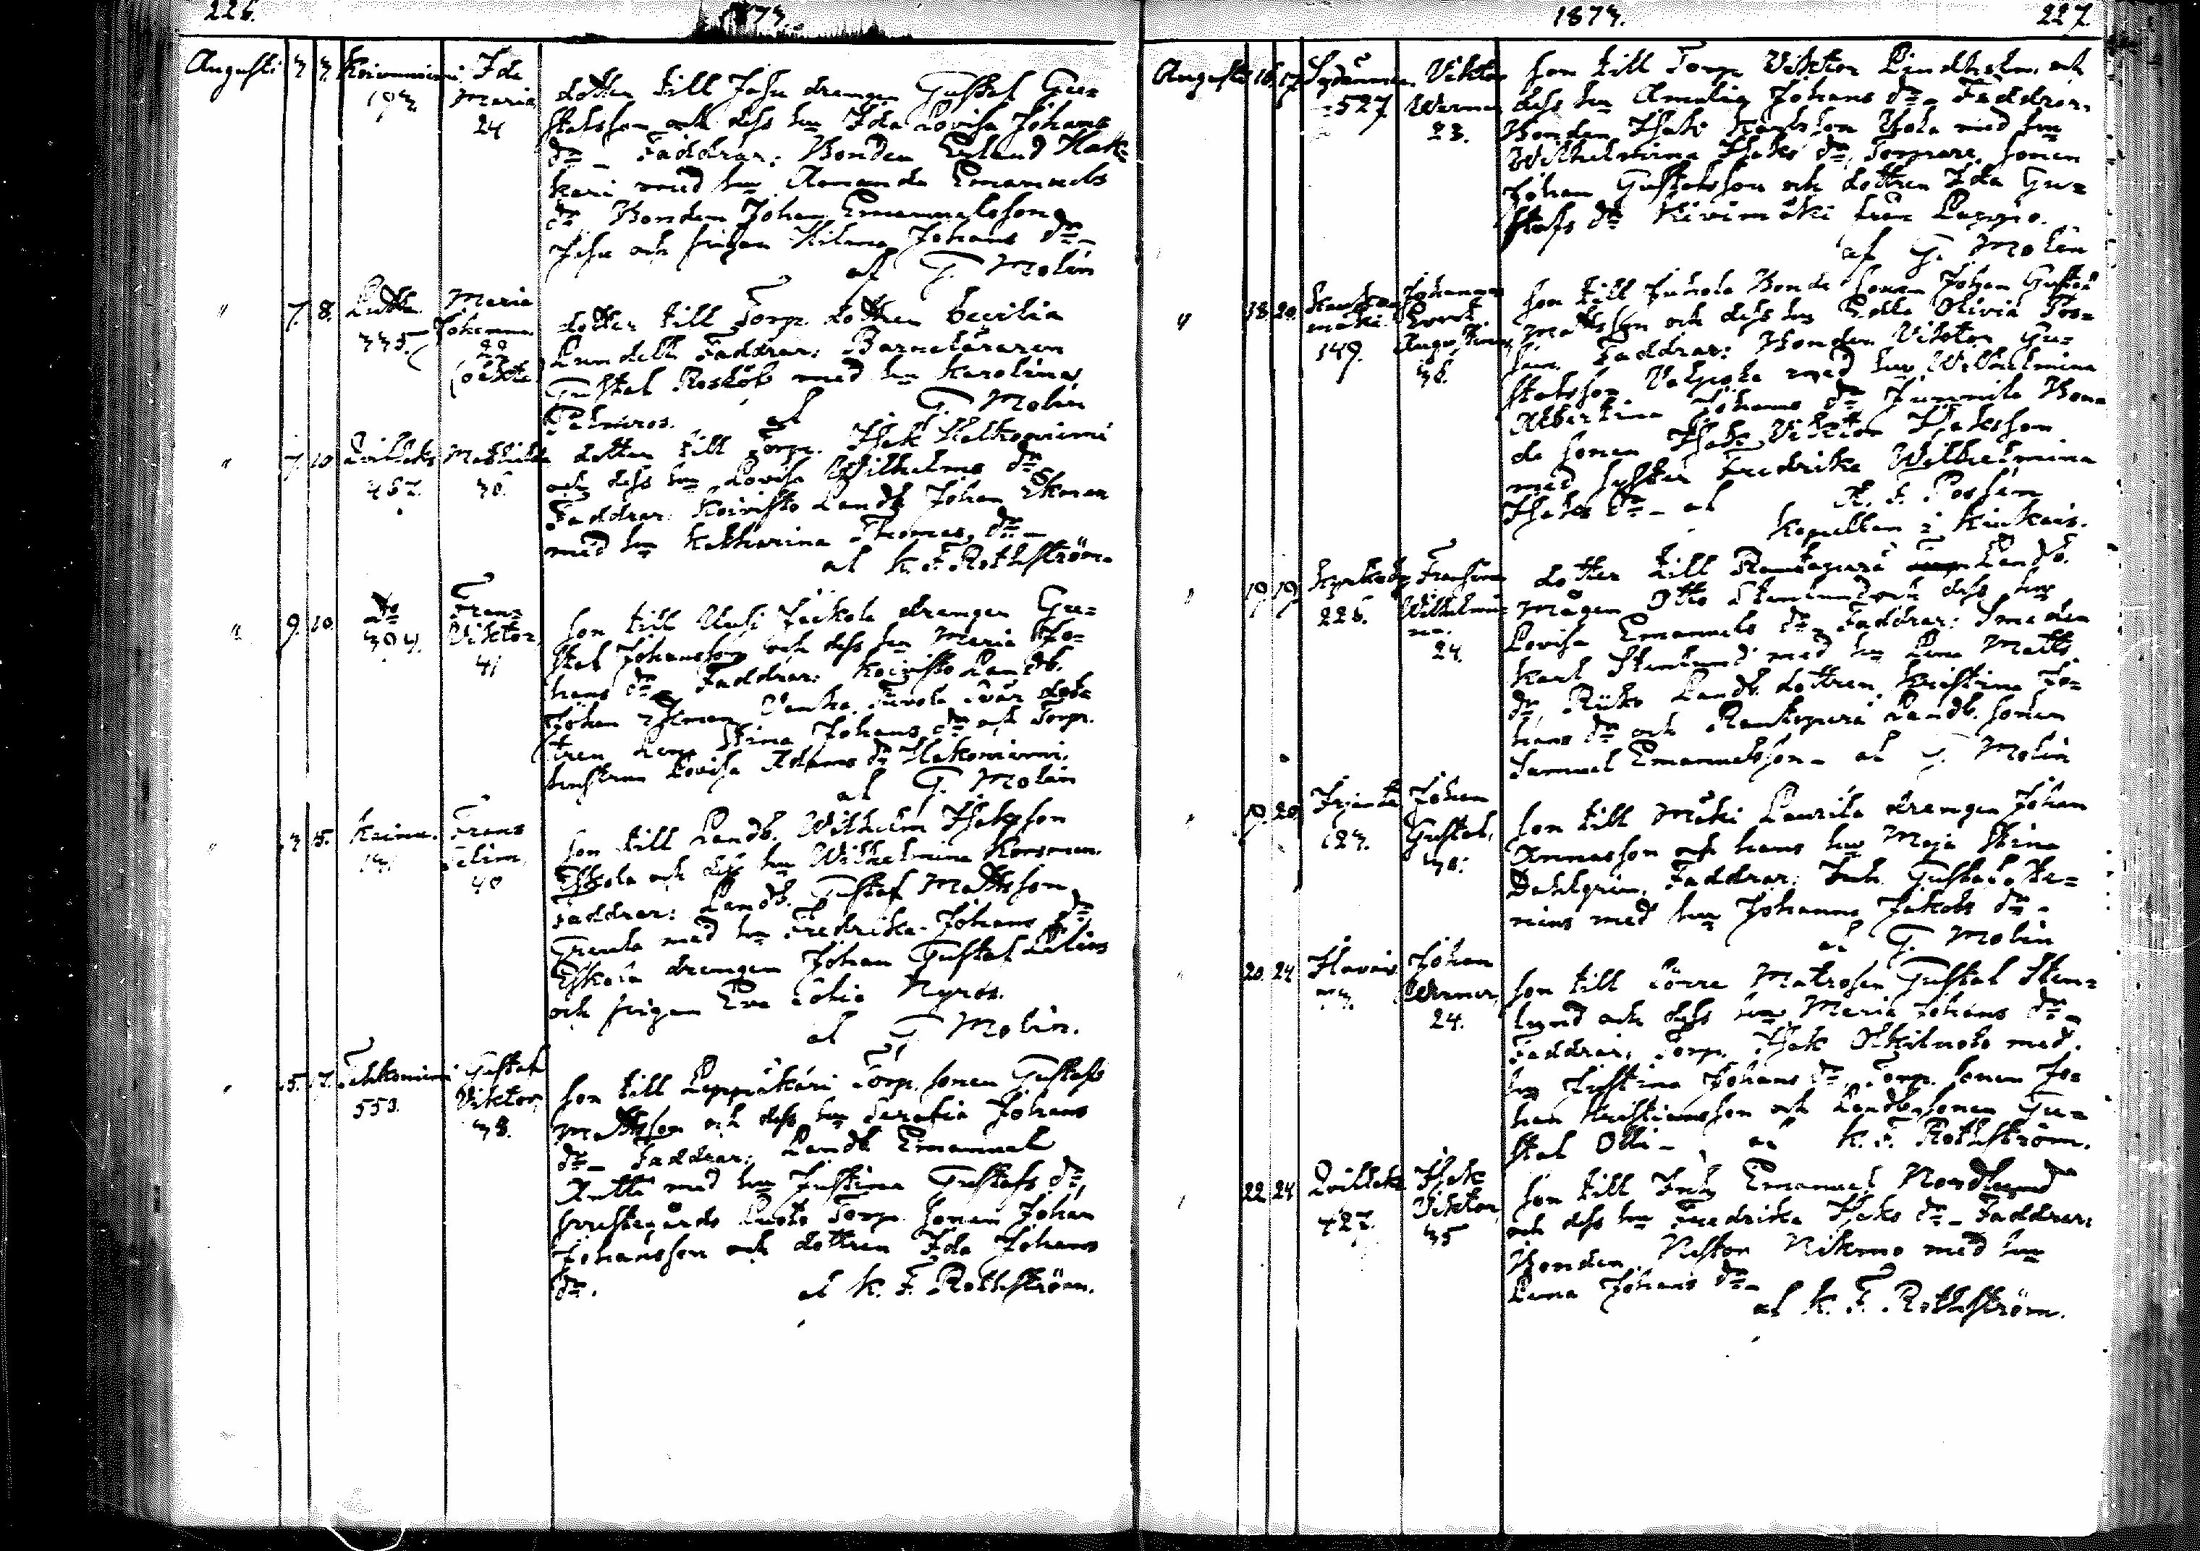 226.
1873.
Augusti 3 3 Koivuniemi Ida
193 Maria
24
dotter till Juhu drengen Gustaf Gu=
stafsson och dess hu Ida Lovisa Johans
dr _ Faddrar: Bonden Erland Hak=
kari med hu Amanda Emanuels
dr Bonden Johan Emanuelsson
Juhu och pigan Hilma Johans dr _
af G. Molin
" 7. 8. Maria
335. Johanna
22
(oäkta)
dotter till Torp. dottren Cecilia
Lundell Faddrar: Barneläraren
Gustaf Rosköb med hu Karolina
Palmros. af G. Molin
" 7. 10 Mathilda
457. 36.
dotter till Torp. Isak Keltoniemi
och dess hu Lovisa Wilhelms dr
Faddrar: Koivisto Landb Johan Ekman
med hu Katharina Thomas dr _
af K. F. Rothström.
" 9. 10. Do Frans
304. Viktor,
41
son till Uusi Jaakola drengen Gu=
staf Johansson och dess hu Maria Jo=
hans dr _ Faddrar: Koivisto Landb.
Johan Ekman Vanha Tuvola Svär dot
tren Lena Stina Johans dr och Torp.
hustrun Lovisa Adams dr Hakoniemi.
af G. Molin
" 15. Kainu. Frans
Selim,
40
son till Landb. Wilhelm Isaksson
Eskola och dess hu Wilhelmina Korsman.
Faddrar: Landb. Gustaf Mattsson
Greula med hu Fredrika Johans dr,
Eskola drengen Johan Gustaf Selim
och pigan Eva Sofia Nyros.
af G Molin.
" 15. 17. Gustaf
553. Viktor,
38.
son till Leppäkäri Torp. sonen Gustaf
Mattsson och dess hu Serafia Johans
dr _ Faddrar: Landb Emanuel
Anttè med hu Justina Gustafs dr,
prestegårds Torp. sonen Johan
Johansson och dottren Ida Johans
dr. af K. F. Rothström.
1873.
227
Augusti 16. 17. Sydänmaa Viktor
527 Werner
23.
son till Torp Viktor Lindholm och
dess hu Amalia Johans dr _ Faddrar,
Bonden Isak Karlsson Yola med hu
Wilhelmina Isaks dr, Torpare sonen
Johan Gustafsson och dottren Ida Gu=
stafs dr Kivimäki från Lappo.
af G. Molin
" 18. 20. Johannes
mäki Evert
149. Augustinus
36.
son till Juhola Bonde sonen Johan Gustaf
Mattsson och dess hu Edla Olivia Pos=
Faddrar: Bonden Viktor Gu=
stafsson med hu Wilhelmina
Albertina Johans dr Junnila Bon
de sonen Isak Viktor Isaksson
med syster Fredrika Wilhelmina
Isaks dr _ af A. F. Possén
Kapellan i Kiukais.
" 19 19 Fransina
226. Wilhelmi=
na.
24.
dotter till Rantapere Landb.
mågen Otto Stenlund och dess hu
Lovisa Emanuels dr _ Faddrar: Smeden
Karl Stenlund med hu Lena Matts
dr Landb. dottren Kristina Jo=
hans dr och Rantaperi Landb. sonen
Samuel Emanuelsson _ af G. Molin
" 19. 20. Irjanta Johan
123. Gustaf,
30.
son till Mäki Laurila drengen Johan
Annasson och hans hu Maja Stina
Dahlgren. Faddrar: Inh. Gustaf He=
nius med hu Johanna Jakobs dr _
af G. Molin
" 20. 24 Johan
Werner,
24.
son till Sörre Matrosen Gustaf Sten=
lund och dess hu Maria Johans dr _
Faddrar: Torp. Isak med
hu Justina Johans dr, Torp. sonen Jo=
han Kristiansson och Landbsonen Gu=
staf Olli _ af K. F. Rothström.
" 22 24 Isak
427. Viktor,
35
son till Inh Emanuel Nordlund
och dess hu Fredrika Isaks dr _ Faddrar:
Bonden Nestor med hu
Lena Johans dr _
af K. F. Rothström.